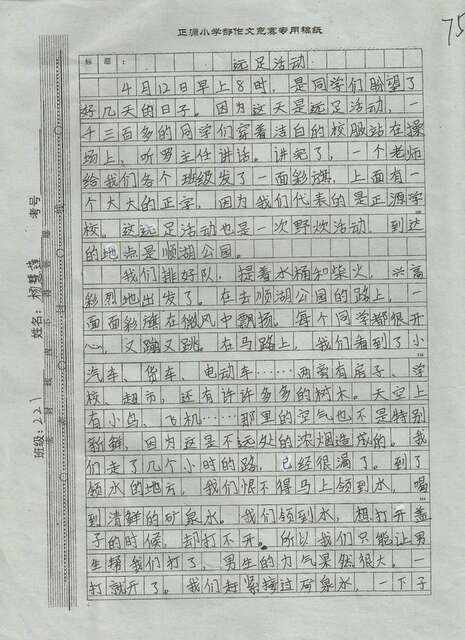 正源小学部作文竞赛专用稿纸
75
标题：远足活动
4月12日早上8时，是同学们盼望了
好几天的日子。因为这天是远足活动，一
千三百多的同学们穿着洁白的校服站在操
场上，听罗主任讲话。讲完了，一个老师
给我们各个班级发了一面彩旗，上面有一
个大大的正字，因为我们代表的是正源学
校。这远足活动也是一次野炊活动。到达
的地点是顺湖公园。
我们排好队，提着水桶和柴火，兴高
彩烈地出发了。在去顺湖公园的路上，一
面面彩旗在微风中飘扬。每个同学都很开
心，又蹦又跳。在马路上，我们看到了小
汽车、货车、电动车……两旁有房子、学
校、超市，还有许许多多的树木。天空上
有小鸟、飞机……那里的空气也不是特别
新鲜，因为这是不远处的浓烟造成的。我
们走了几个小时的路，已经很渴了。到了
领水的地方，我们恨不得马上领到水，喝
到清鲜的矿泉水。我们领到水，想打开盖
子的时候，却打不开。所以我们只能让男
生帮我们打了，男生的力气果然很大。一
打就开了。我们赶紧接过矿泉水，一下子
班级：221
姓名：杨慧
考号